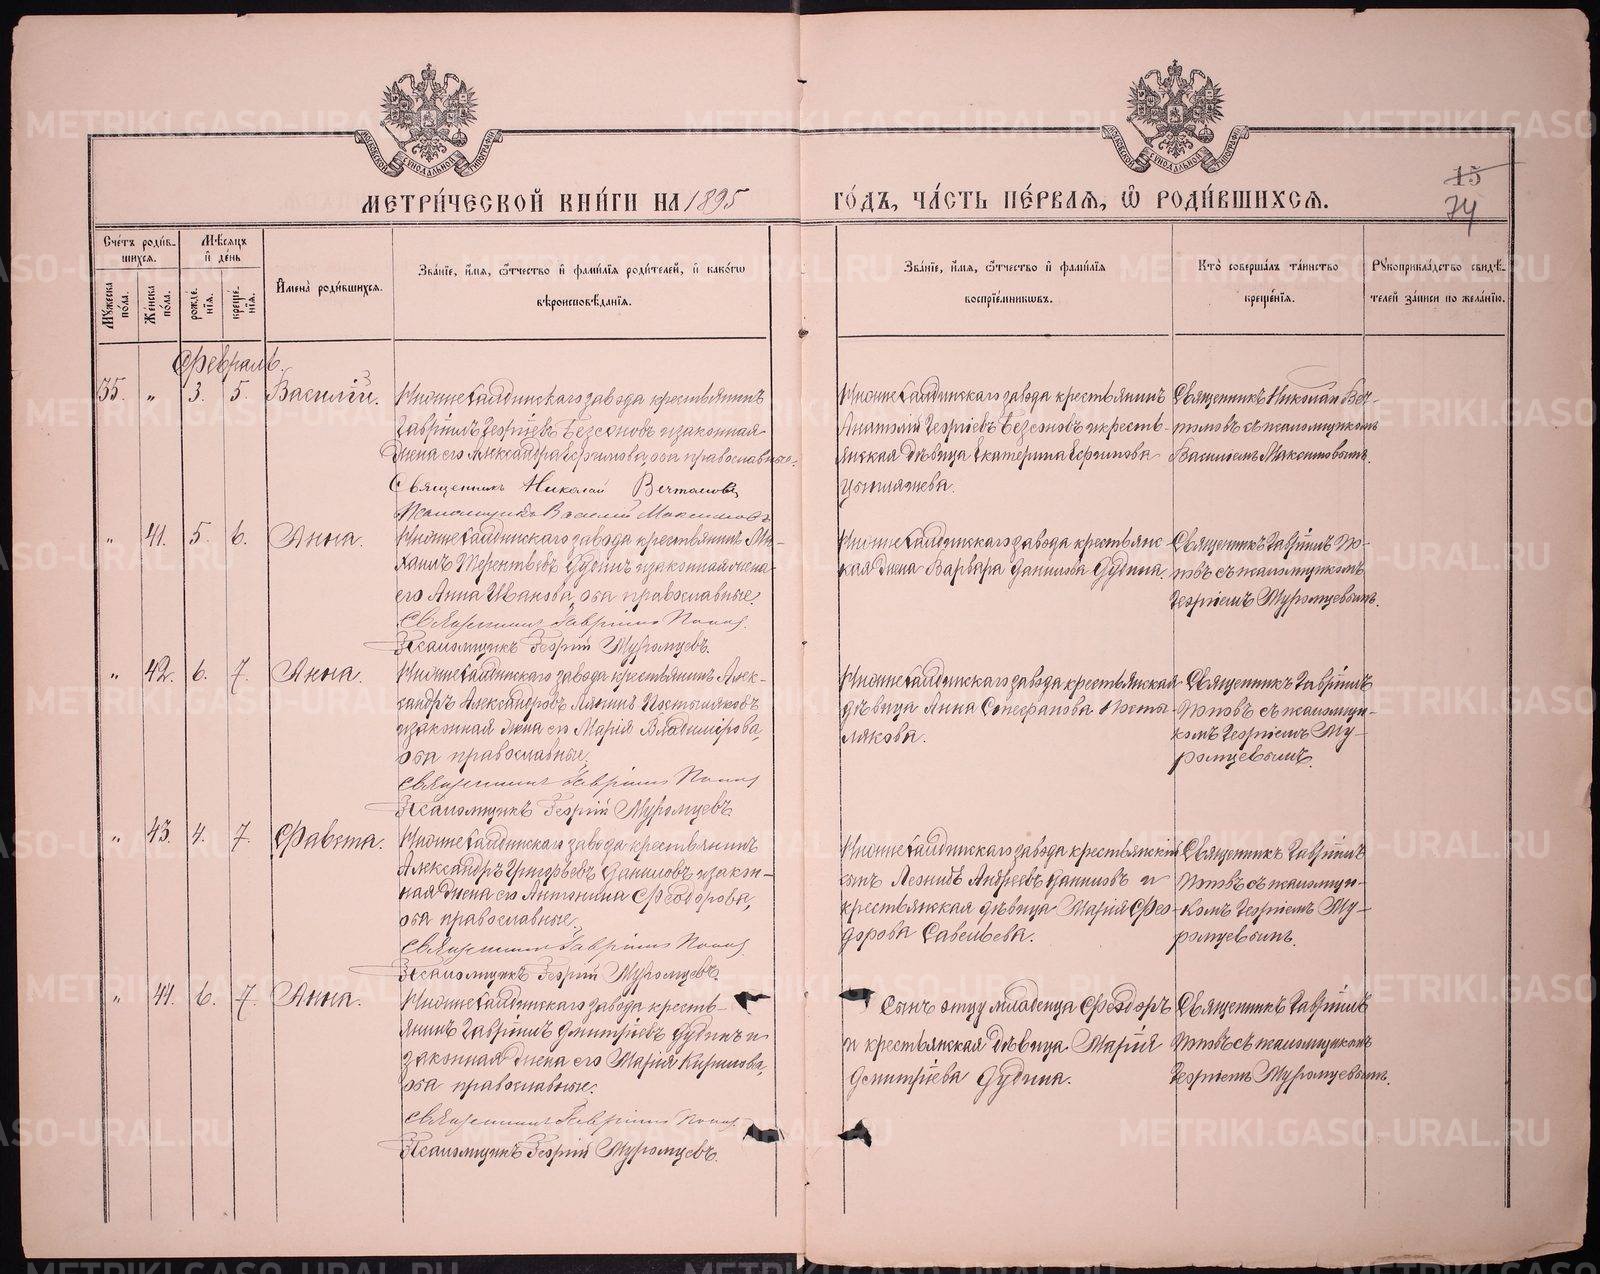 МЕТРИ́ЧЕСКОЙ КНИ́ГИ НА 1895
ГО́ДЪ, ЧА́СТЬ ПЕ́РВАЯ, Ѡ РОДИ́ВШИХСЯ.
15
74
Сче́тъ роди́в-
шихся.
Мѣ́сяцъ
и де́нь
Му́жеска
по́ла.
Же́нска
по́ла.
рожде́-
нія.
креще́-
нія.
Имена̀ роди́вшихся.
Зва́ніе, и́мя, ѻ́тчество и фами́лія роди́телей, и како́гѡ
вѣроисповѣ́данія.
Зва́ніе, и́мя, ѻ́тчество и фами́лія
воспріе́мникѡвъ.
Кто̀ соверша́лъ та́инство
креще́нія.
Рукоприкла́дство свидѣ́-
телей за́писи по жела́нію.
Февраль
35. „ 3. 5. Василій.
Нижнесалдинскаго завода крестьянинъ
Гавріилъ Георгіевъ Безсоновъ и законная
жена его Александра Ефимова, оба православные.
Священникъ Николай
Псаломщикъ Василій Максимовъ
Нижнесалдинскаго завода крестьянинъ
Анатолій Георгіевъ Безсоновъ и кресть-
янская дѣвица Екатерина Ефимова
Священникъ Николай
съ псаломщикомъ
Василіемъ Максимовымъ.
„ 41. 5. 6. Анна.
Нижнесалдинскаго завода крестьянинъ Ми-
хаилъ Терентьевъ Дудинъ и законная жена
его Анна Иванова, оба православные.
Священникъ Гавріилъ Поповъ
Псаломщикъ Георгій Муромцевъ.
Нижнесалдинскаго завода крестьянс-
кая жена Варвара Данилова Дудина.
Священникъ Гавріилъ По-
повъ съ псаломщикомъ
Георгіемъ Муромцевымъ.
„ 42. 6. 7. Анна.
Нижнесалдинскаго завода крестьянинъ Алек-
сандръ Александровъ Постыляковъ
и законная жена его Марія Владимірова,
оба православные.
Священникъ Гавріилъ Поповъ
Псаломщикъ Георгій Муромцевъ.
Нижнесалдинскаго завода крестьянская
дѣвица Анна Стефанова Посты-
лякова.
Священникъ Гавріилъ
Поповъ съ псаломщи-
комъ Георгіемъ Му-
ромцевымъ.
„ 43. 4. 7. Фавста.
Нижнесалдинскаго завода крестьянинъ
Александръ Григорьевъ Даниловъ и закон-
ная жена его Антонина Феодорова,
оба православные.
Священникъ Гавріилъ Поповъ
Псаломщикъ Георгій Муромцевъ.
Нижнесалдинскаго завода крестьянскій
сынъ Леонидъ Андреевъ Даниловъ и
крестьянская дѣвица Марія Фео-
дорова Савельева.
Священникъ Гавріилъ
Поповъ съ псаломщи-
комъ Георгіемъ Му-
ромцевымъ.
„ 44. 6. 7. Анна.
Нижнесалдинскаго завода кресть-
янинъ Гавріилъ Димитріевъ Дудинъ и
законная жена его Марія Кирилова,
оба православные.
Священникъ Гавріилъ Поповъ
Псаломщикъ Георгій Муромцевъ.
Сынъ отцу младенца Феодоръ
и крестьянская дѣвица Марія
Димитріева Дудина.
Священникъ Гавріилъ
Поповъ съ псаломщикомъ
Георгіемъ Муромцевымъ.
METRIKI.GASO-URAL.RU